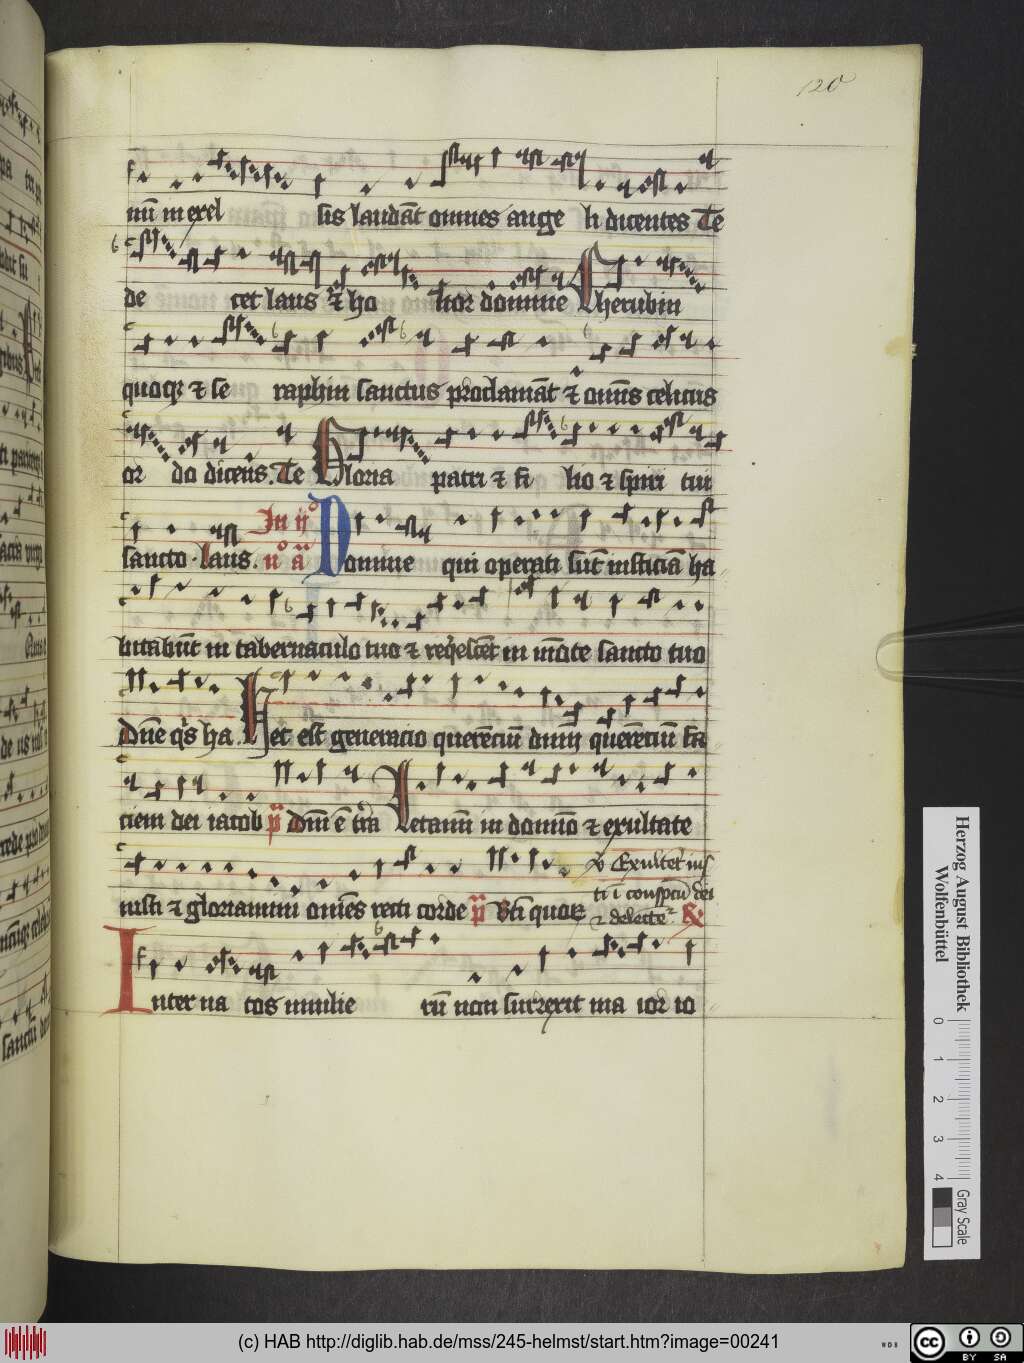 120
nū in excel sis laudāt omnes ange li dicentes Te
de cet laus ⁊ ho nor domine Cherubin
quoqꝫ ⁊ se raphin sanctus proclamāt ⁊ omīs celicus
or do dicēns. Te Gloria patri ⁊ fi lio ⁊ spiri tui
sancto . laus . In ijº
nº aª Domine qui operati sūt iusticiā ha
bitabūt in tabernaculo tuo ⁊ reqescēt in mōte sancto tuo
Dn̄e qis ha . Hec est generacio querēciū dn̄m querēciū fa
ciem dei iacob p̄ Dn̄i ē tr̄a Letamī in domīo ⁊ exultate
v Exultēt ius
iusti ⁊ gloriamini om̄es recti corde p̄ Bt̄i quos
ti ī conspcū dei
⁊ delectēt R
Inter na tos mulie rū non surrexit ma ior io
Herzog August Bibliothek
Wolfenbüttel
0 1 2 3 4
Gray Scale
(c) HAB http://diglib.hab.de/mss/245-helmst/start.htm?image=00241
WDB
cc BY SA